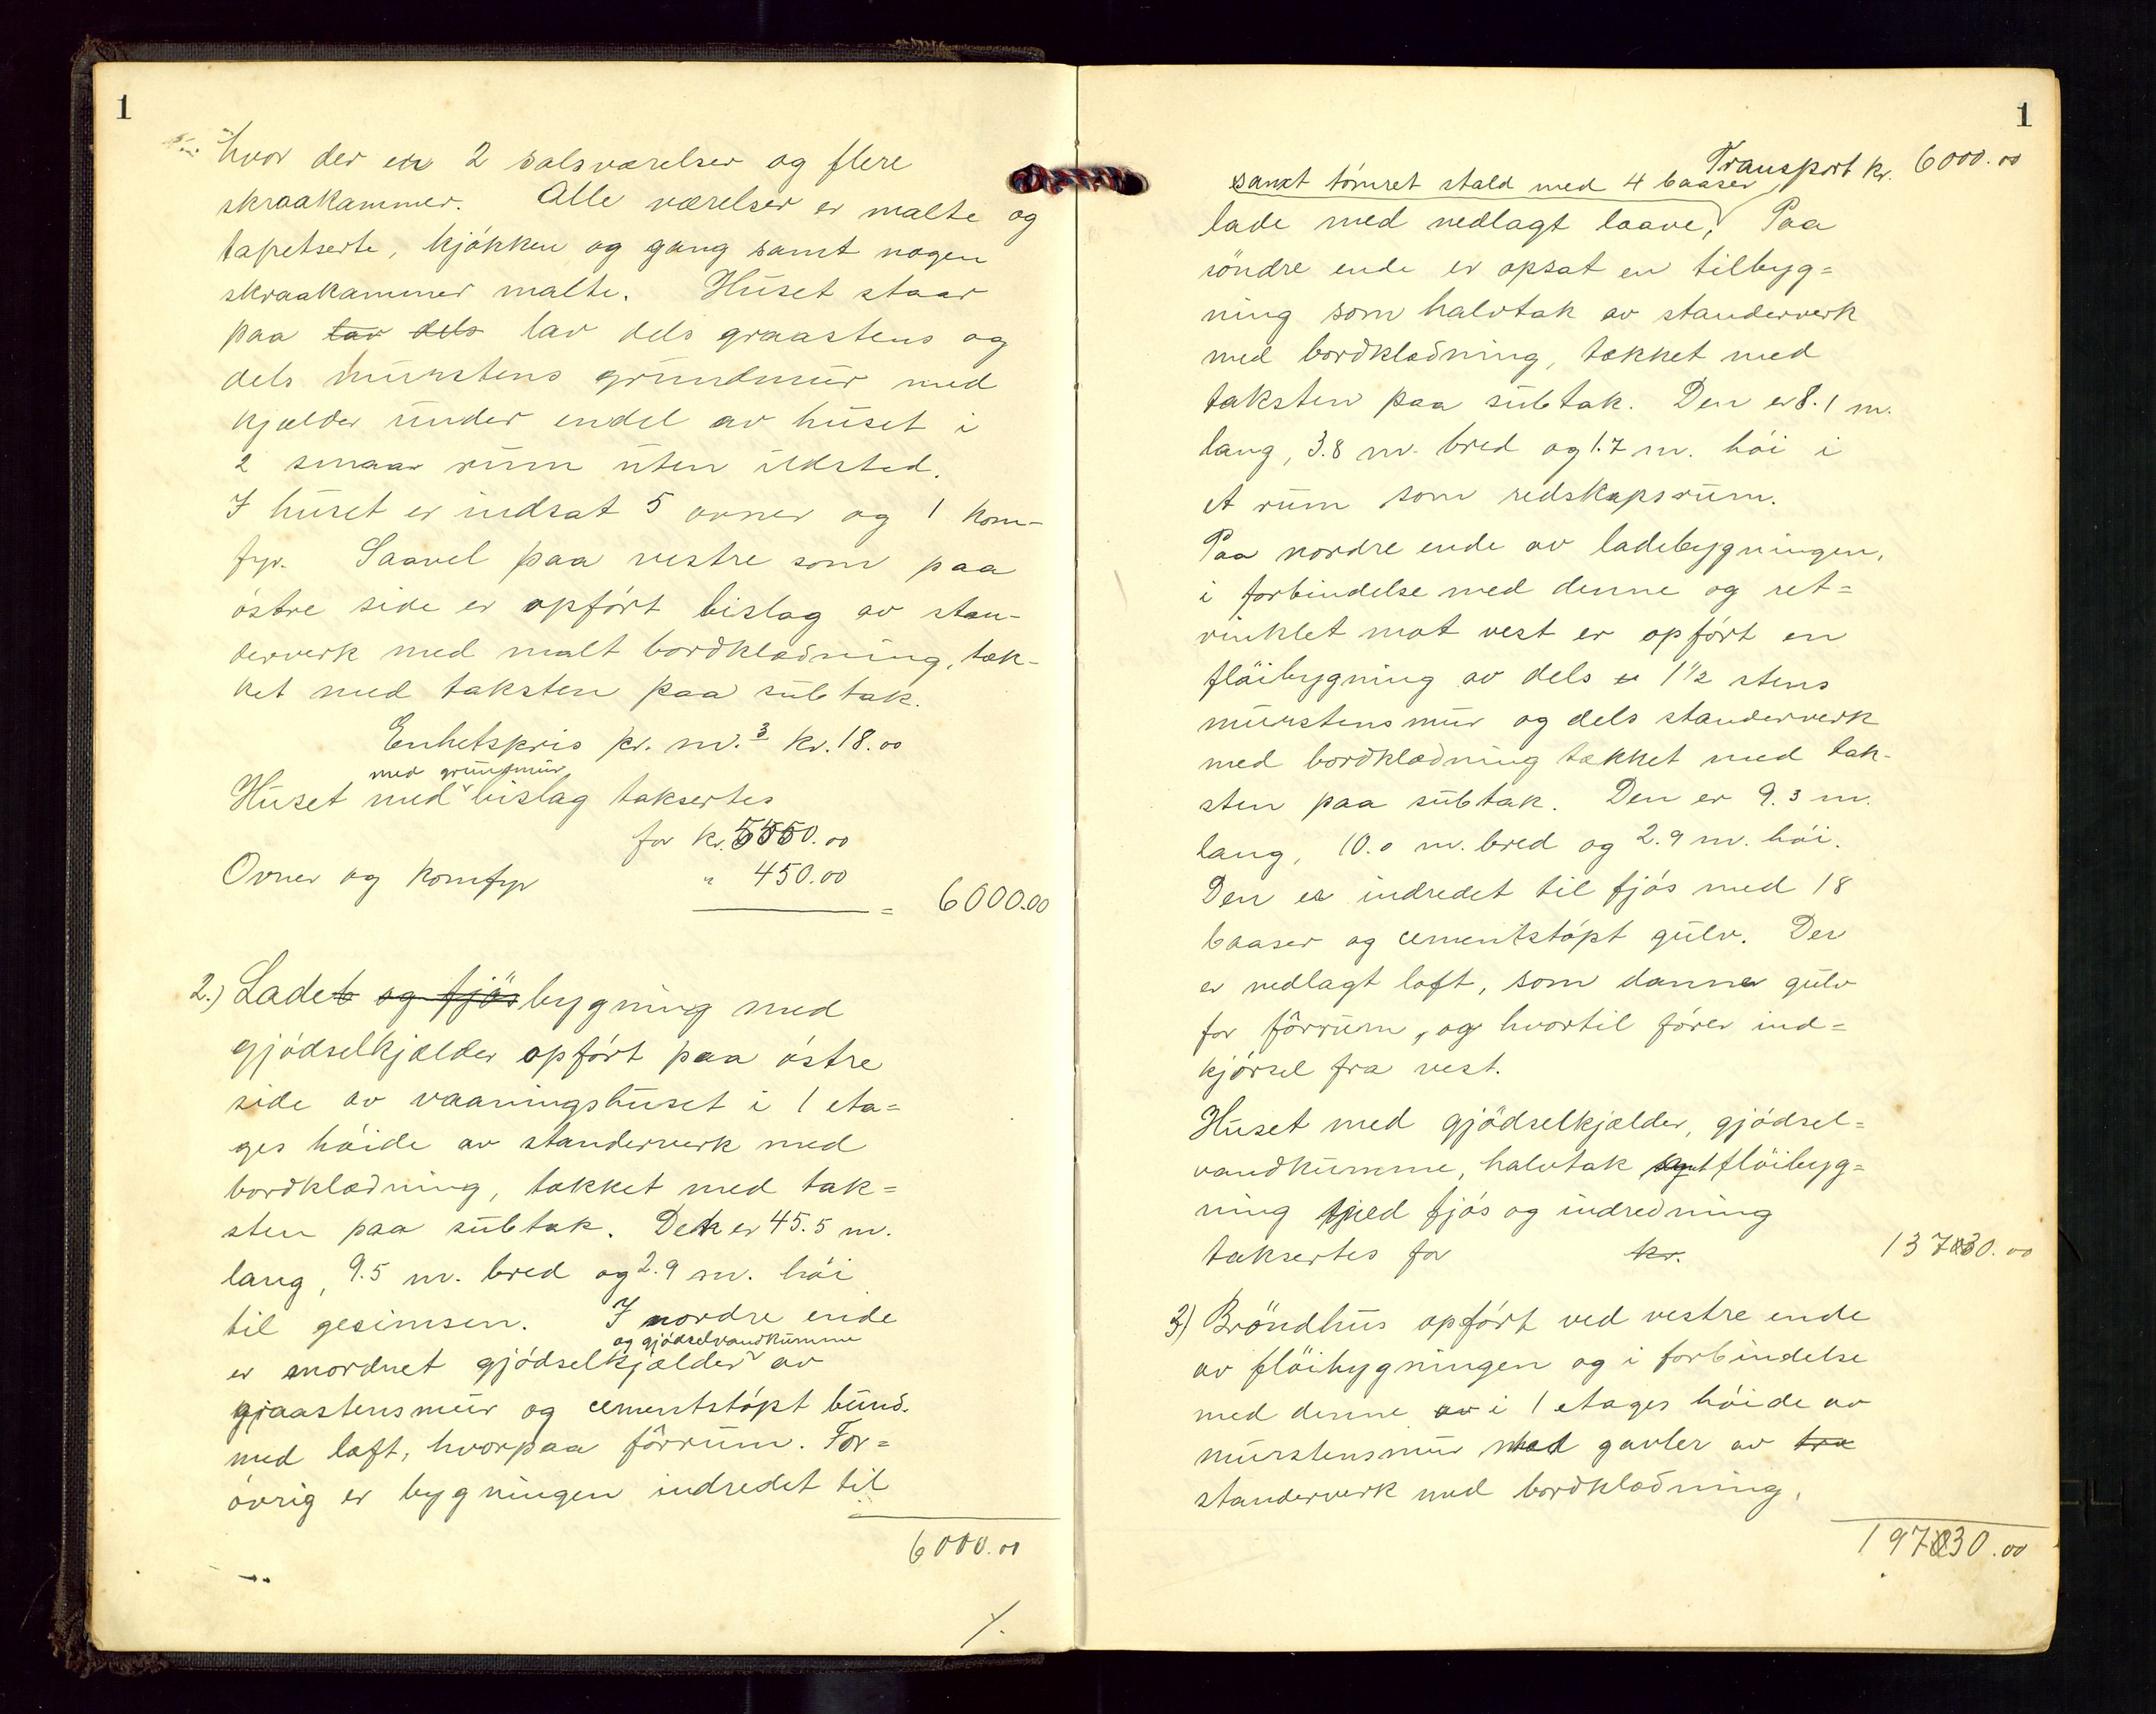 1
hvor der er 2 salsværelser og flere
skraakammer. Alle værelser er malte og
tapetserte, kjökken og gang samt nogen
skraakammer malte. Huset staar
paa lav dels lav dels graastens og
dels murstens grundmur med
kjælder under endel av huset i
2 smaa rum uten ildsted.
I huset er indsat 5 ovner og 1 kom-
fyr. Saavel paa vestre som paa
östre side er opfört bislag av stan-
derverk med malt bordklædning, tæk-
ket med taksten paa subtak.
Enhetspris pr. m.3 kr. 18.00
med grundmur
Huset med bislag taksertes
for kr. 5550.00
Ovner og komfyr " 450.00
= 6000.00
2.) Lade og fjösbygning med
gjödselkjælder opfört paa östre
side av vaaningshuset i 1 eta=
ges höide av standerverk med
bordklædning, tækket med tak=
sten paa subtak. Den er 45.5 m.
lang, 9.5 m. bred og 2.9 m. höi
til gesimsen. I nordre ende
og gjödselvandkumme
er anordnet gjödselkjælder av
graastensmur og cementstöpt bund.
med loft, hvorpaa fôrrum. For=
övrig er bygningen indredet til
6000.00
./.
1
Transport kr. 6000.00
samt tömret stald med 4 baaser
lade med nedlagt laave, Paa
söndre ende er opsat en tilbyg=
ning som halvtak av standerverk
med bordklædning, tækket med
taksten paa subtak. Den er 8.1 m.
lang, 3.8 m. bred og 1.7 m. höi i
et rum som redskapsrum.
Paa nordre ende av ladebygningen,
i forbindelse med denne og ret=
vinklet mot vest er opfört en
flöibygning av dels 1 1/2 stens
murstensmur og dels standerverk
med bordklædning tækket med tak-
sten paa subtak. Den er 9.3 m.
lang, 10.0 m. bred og 2.9 m. höi.
Den er indredet til fjös med 18
baaser og cementstöpt gulv. Der
er nedlagt loft, som danner gulv
for fôrrum, og hvortil förer ind=
kjörsel fra vest.
Huset med gjödselkjælder, gjödsel=
vandkumme, halvtak samt flöibyg=
ning med fjös og indredning
taksertes for kr. 13730.00
3) Bröndhus opfört ved vestre ende
av flöibygningen og i forbindelse
med denne av i 1 etages höide av
murstensmur med gavler av træ
standerverk med bordklædning,
19730.00